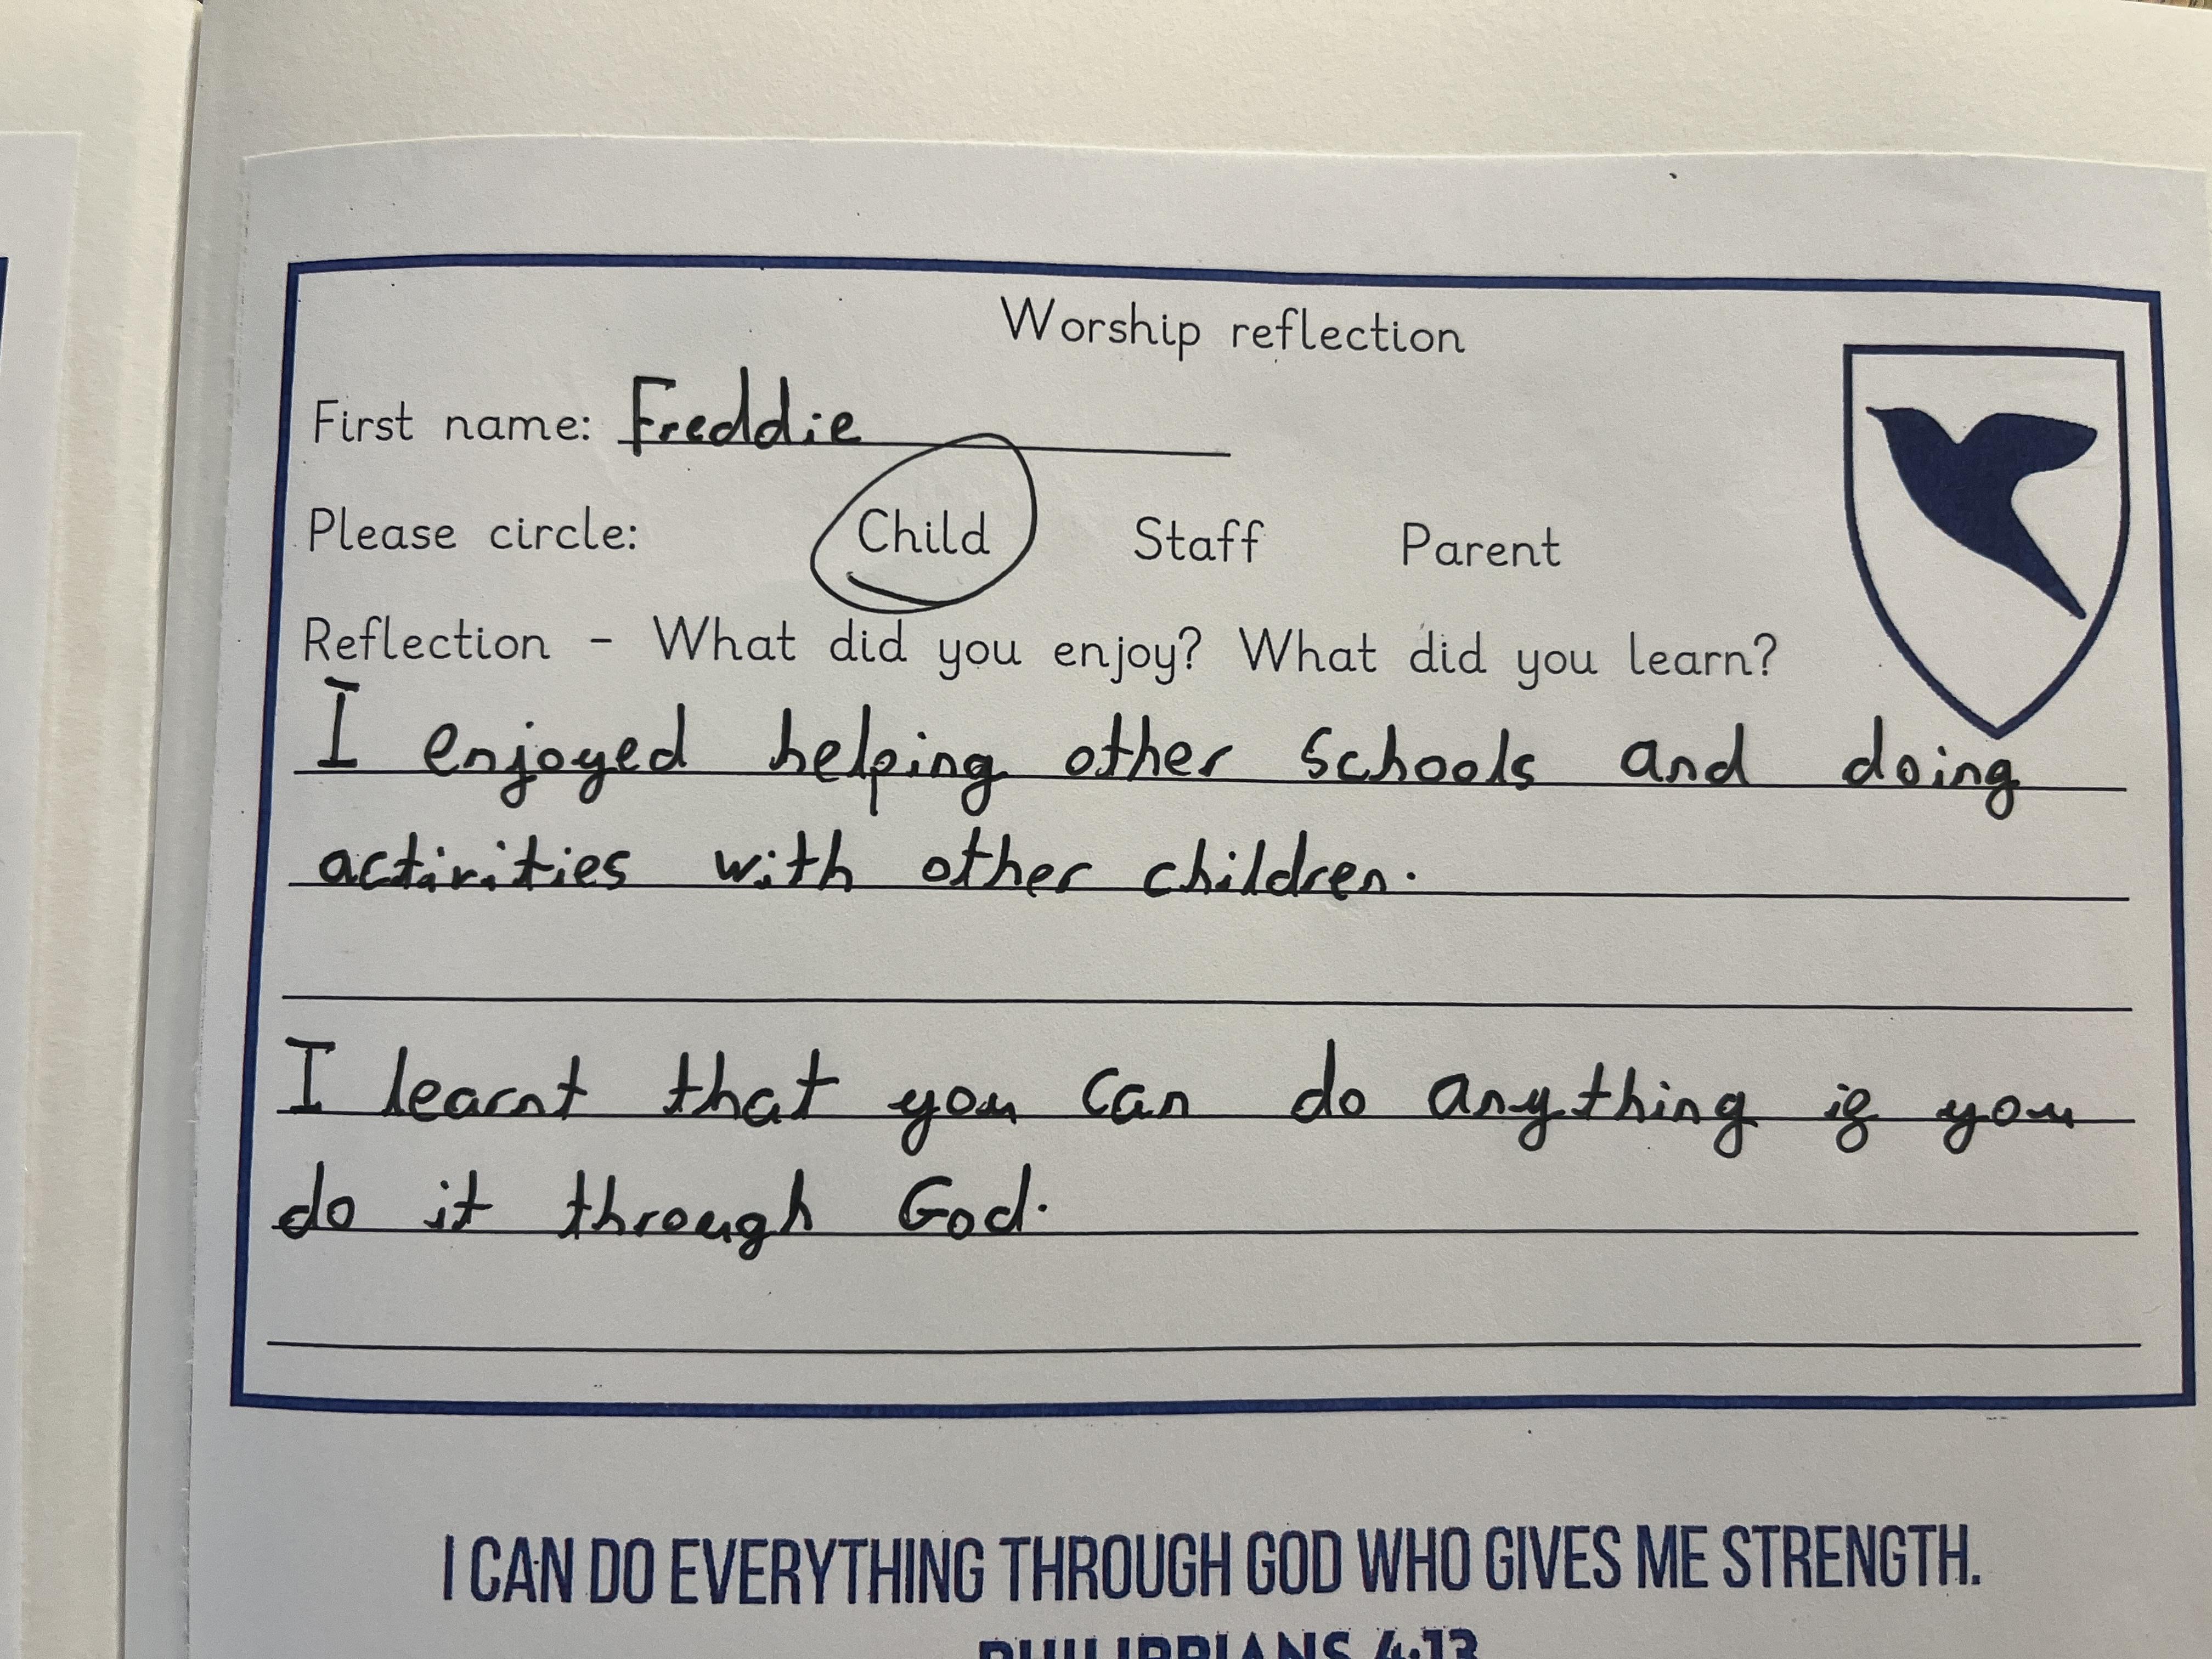 Worship reflection
First name: Freddie
Please circle: Child Staff Parent
Reflection - What did you enjoy? What did you learn?
I enjoyed helping other schools and doing
activities with other children.
I learnt that you can do anything if you
do it through God.
I CAN DO EVERYTHING THROUGH GOD WHO GIVES ME STRENGTH.
PHILIPPIANS 4:13